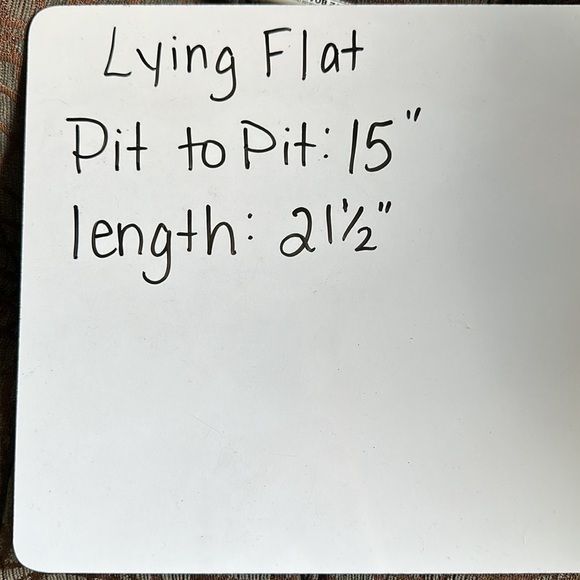 Lying Flat
Pit to Pit: 15"
length: 21½"